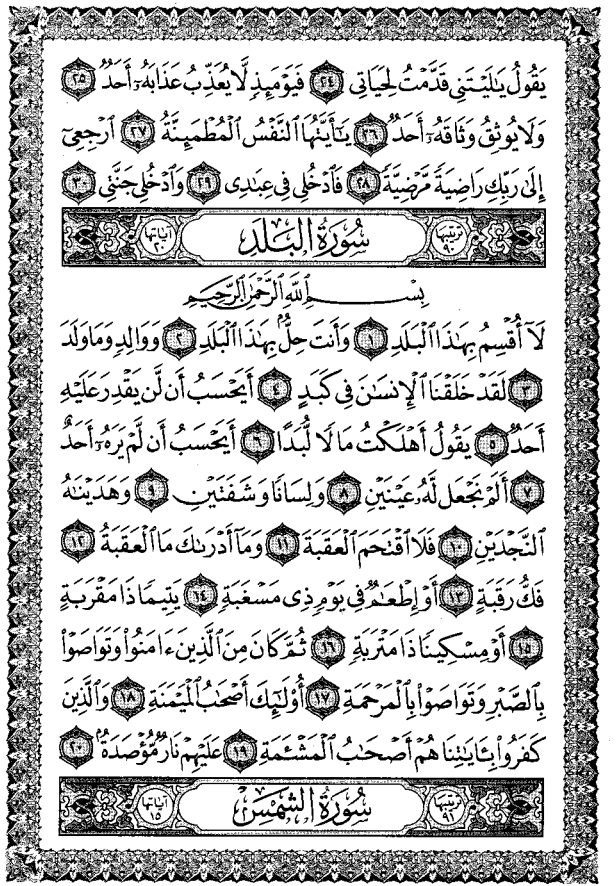 يَقُولُ يَٰلَيۡتَنِي قَدَّمۡتُ لِحَيَاتِي ٢٤ فَيَوۡمَئِذٖ لَّا يُعَذِّبُ عَذَابَهُۥٓ أَحَدٞ ٢٥
وَلَا يُوثِقُ وَثَاقَهُۥٓ أَحَدٞ ٢٦ يَٰٓأَيَّتُهَا ٱلنَّفۡسُ ٱلۡمُطۡمَئِنَّةُ ٢٧ ٱرۡجِعِيٓ
إِلَىٰ رَبِّكِ رَاضِيَةٗ مَّرۡضِيَّةٗ ٢٨ فَٱدۡخُلِي فِي عِبَٰدِي ٢٩ وَٱدۡخُلِي جَنَّتِي ٣٠
ترتيبها ٩٠ سُورَةُ البَلَدِ آياتها ٢٠
بِسۡمِ ٱللَّهِ ٱلرَّحۡمَٰنِ ٱلرَّحِيمِ
لَآ أُقۡسِمُ بِهَٰذَا ٱلۡبَلَدِ ١ وَأَنتَ حِلُّۢ بِهَٰذَا ٱلۡبَلَدِ ٢ وَوَالِدٖ وَمَا وَلَدَ
٣ لَقَدۡ خَلَقۡنَا ٱلۡإِنسَٰنَ فِي كَبَدٍ ٤ أَيَحۡسَبُ أَن لَّن يَقۡدِرَ عَلَيۡهِ
أَحَدٞ ٥ يَقُولُ أَهۡلَكۡتُ مَالٗا لُّبَدًا ٦ أَيَحۡسَبُ أَن لَّمۡ يَرَهُۥٓ أَحَدٌ
٧ أَلَمۡ نَجۡعَل لَّهُۥ عَيۡنَيۡنِ ٨ وَلِسَانٗا وَشَفَتَيۡنِ ٩ وَهَدَيۡنَٰهُ
ٱلنَّجۡدَيۡنِ ١٠ فَلَا ٱقۡتَحَمَ ٱلۡعَقَبَةَ ١١ وَمَآ أَدۡرَىٰكَ مَا ٱلۡعَقَبَةُ ١٢
فَكُّ رَقَبَةٍ ١٣ أَوۡ إِطۡعَٰمٞ فِي يَوۡمٖ ذِي مَسۡغَبَةٖ ١٤ يَتِيمٗا ذَا مَقۡرَبَةٍ
١٥ أَوۡ مِسۡكِينٗا ذَا مَتۡرَبَةٖ ١٦ ثُمَّ كَانَ مِنَ ٱلَّذِينَ ءَامَنُواْ وَتَوَاصَوۡاْ
بِٱلصَّبۡرِ وَتَوَاصَوۡاْ بِٱلۡمَرۡحَمَةِ ١٧ أُوْلَٰٓئِكَ أَصۡحَٰبُ ٱلۡمَيۡمَنَةِ ١٨ وَٱلَّذِينَ
كَفَرُواْ بِـَٔايَٰتِنَا هُمۡ أَصۡحَٰبُ ٱلۡمَشۡـَٔمَةِ ١٩ عَلَيۡهِمۡ نَارٞ مُّؤۡصَدَةُۢ ٢٠
ترتيبها ٩١ سُورَةُ الشَّمْسِ آياتها ١٥